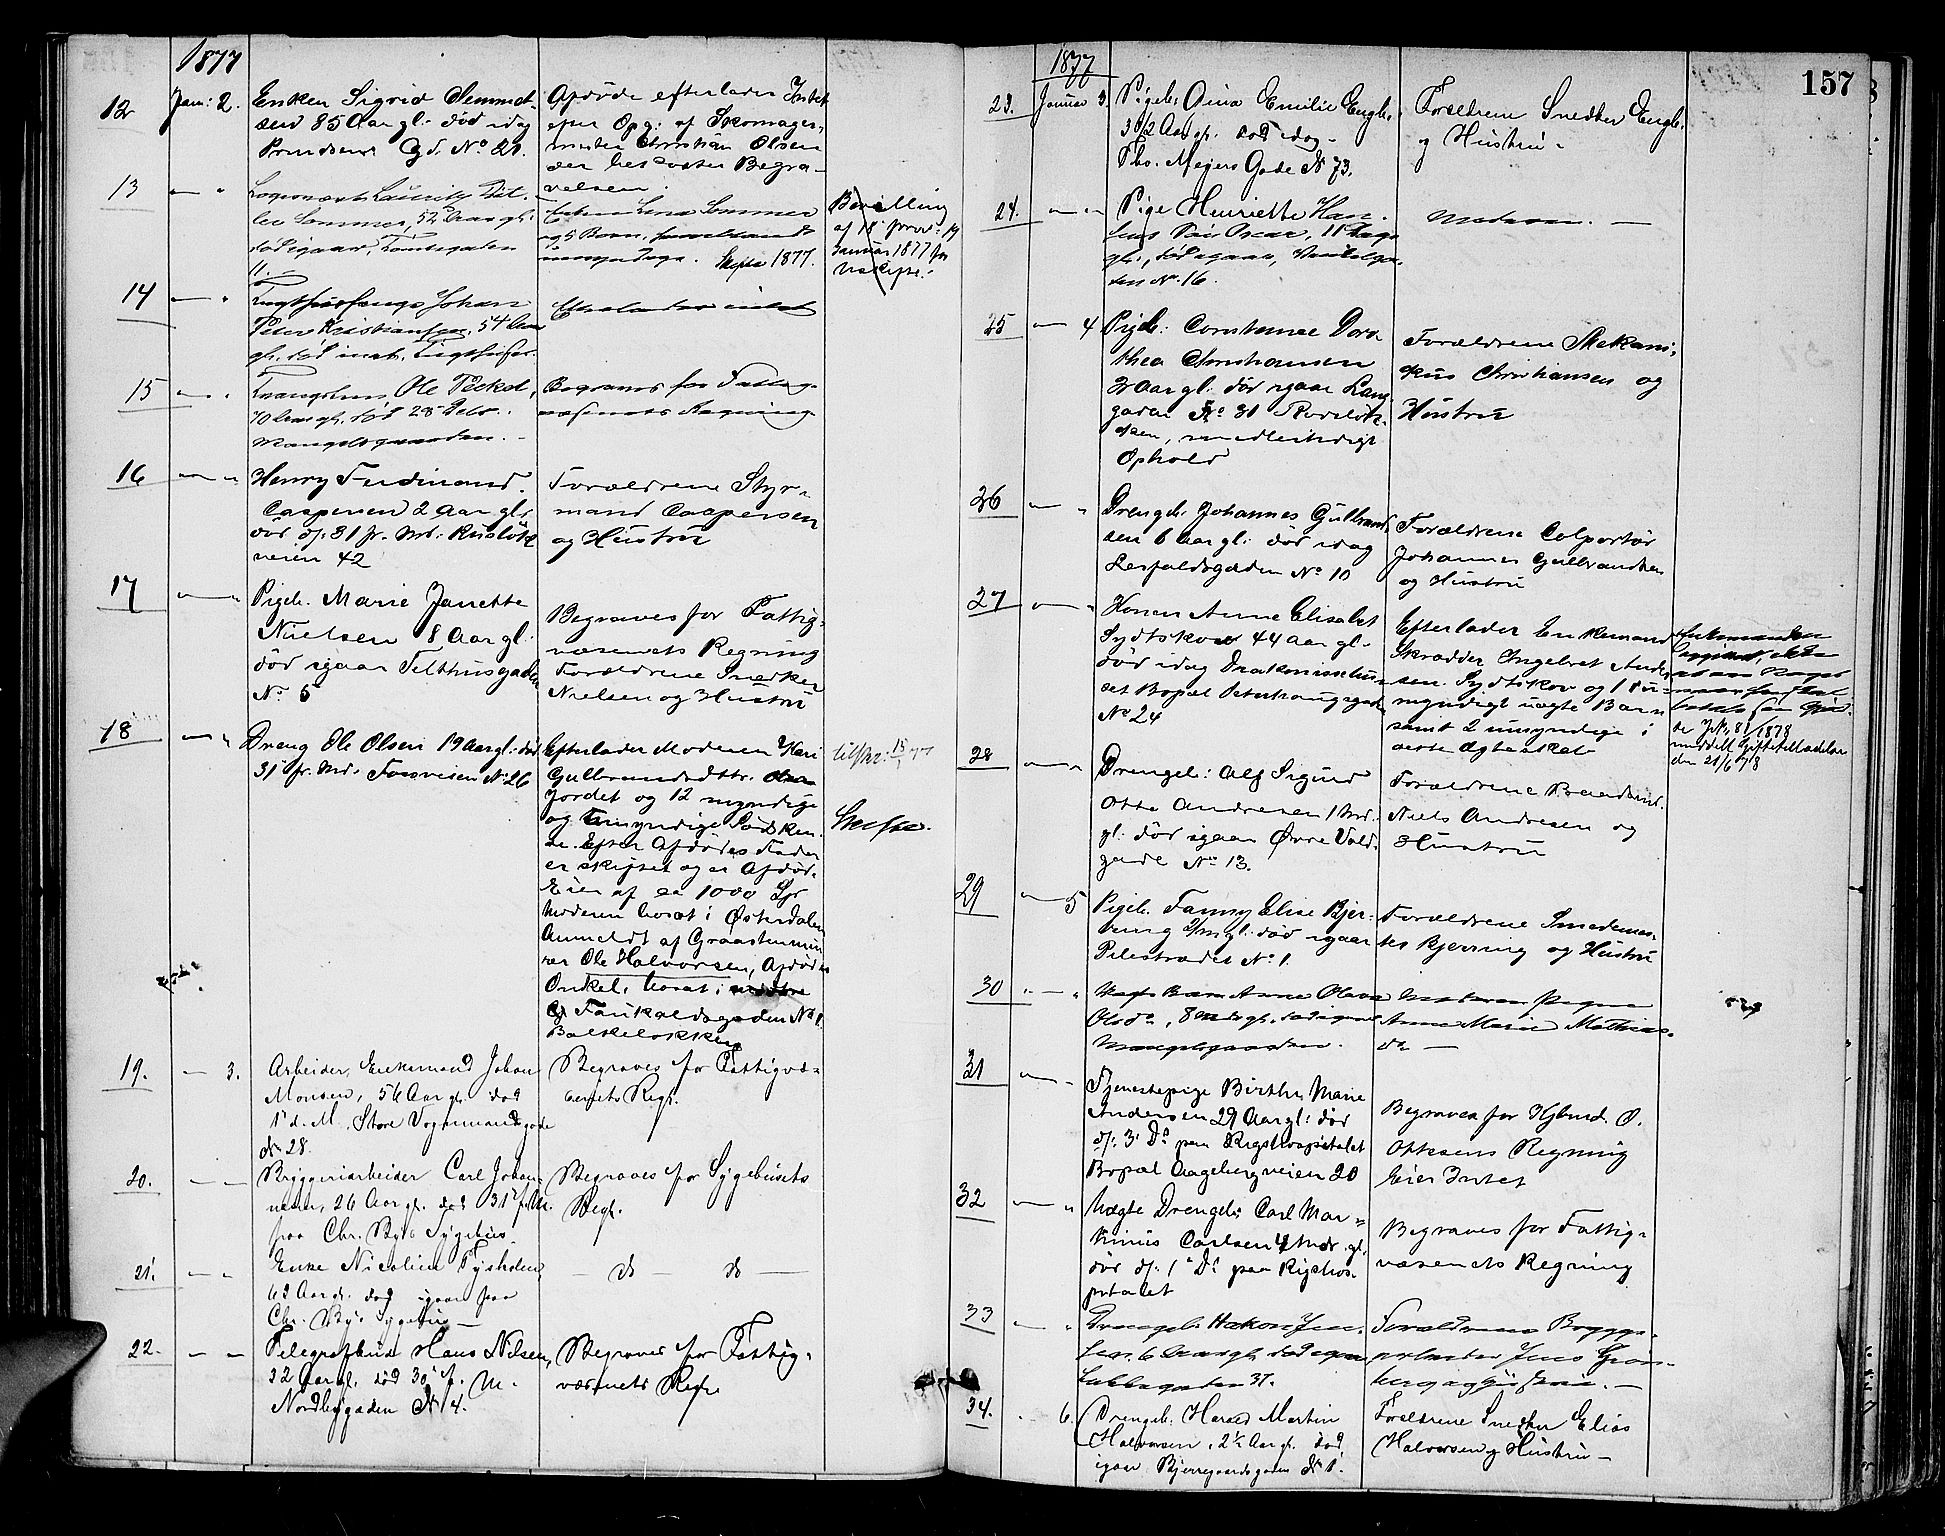 1877
12
Jan: 2.
Enken Sigrid
sen 85 Aar gl. død idag
Grd. No 21.
Afdøde efterlader Intet
efter Opg: af Skomager-
mester Christian Olsen
der bekoster Begra-
velsen.
13
lev Sommer, 52 Aar gl.
død igaar, Tomtegaden
11.
Enken Lina Sommer
og 5 Børn,
Skifte 1877.
Bevilling
af 18
Januar 1877 for
14
Tugthusfange Johan
Peter Kristiansen, 54 Aar
gl. død
Efterlader intet
15
Ole
70 Aar gl. død 28 Debr.
Mangelsgaarden.
Begraves for Fattig-
væsenets Regning
16
Henry Ferdinand
Caspersen 2 Aar gl.
død d/. 31 f. Md. Ruseløk
veien 42
Forældrene Styr-
mand Caspersen
og Hustru
17
Pigeb. Marie Janette
Nielsen 8 Aar gl.
død igaar Telthusgaden
No 5
Begraves for Fattig-
væsenets Regning
Forældrene Snedker
Nielsen og Hustru
18
Dreng Ole Olsen 19 Aar gl. død
31 fr. Md. Fossveien No 26
Efterlader Moderen Kari
Gulbrandsdtr.
Jordet og 12 myndige
og umyndige Sødsken-
de. Efter Afdødes Fader
er skiftet og er Afdød.
Eier af ca 1000 Spd
Moderen bosat i Østerdalen
Anmeldt af Graastensmu-
rer Ole Halvorsen, Afdødes
Onkel, bosat i
Faukaldsgaden No 1
Balkeløkken
Skifte.
19.
3.
Arbeider, Enkemand Johan
Monsen, 56 Aar gl. død
1 d. M. Store Vognmandsgade
No 28.
Begraves for Fattigvæ-
senets Regn.
20.
Bryggeriarbeider Carl Johan-
nesen, 26 Aar gl. død 31 f. M.
paa Chr. Bys Sygehus.
Begraves for Sygehusets
Regn.
21.
Enke Nicoline Fysholm,
62 Aar gl. død igaar paa
Chr. Bys Sygehus
do do
22.
Telegrafbud Hans Nilsen,
32 Aar gl. død 30 f. M.
Nordbygaden No 4.
Begraves for Fattig-
væsenets Regn.
157
1877
23.
Januar 3.
Pigeb. Gina Emilie Engh.
3 1/2 Aar gl. død idag
Ths. Meyers Gade No 73.
Forældrene Snedker Engh.
og Hustru
24.
Pige Henriette Han-
sens Søn Oscar, 11 Dage
gl., død igaar,
den No. 16.
Moderen.
25
4
Pigeb: Constance Doro-
thea Christiansen
3 Aar gl. død igaar Lang
gaden No 31 Rodeløk-
ken, midlertidigt
Ophold
Forældrene Mekani-
kus Christiansen og
Hustru
26
Drengeb. Johannes Gulbrand-
sen 6 Aar gl. død idag
No 10
Forældrene Colportør
Johannes Gulbrandsen
og Hustru
27
Konen Anne Elisabet
Sydtskov 44 Aar gl.
død idag Diakonissehu-
set Bopæl Peterhaugsgaden
No 24
Efterlader Enkemand
Skrædder Ingebret Ander-
sen Sydtskov og 1 u-
myndigt uægte Barn
samt 2 umyndige i
ægte
Enkemanden
se J No 81/1878
meddelt Giftetilladelse
den 21/6 78
28
Drengeb: Alf Sigurd
Otto Andresen 1 Md.
gl. død igaar Øvre Vold
gade No 13.
Forældrene
Niels Andresen og
Hustru
29
5
Pigeb. Fanny Elise Bjer-
ring gl. død igaar
Pilestrædet No 1.
Forældrene Smedemes-
ter Bjerring og Hustru
30
Barn Anne Olava
Olsdr., 8 Mdr. gl. død igaar
Mangelsgaarden.
Moderen Pigen
Anne Marie Mathias-
dr
31
Tjenestepige Birthe Marie
Andersen 29 Aar gl: død
d/. 3 Ds paa Rigshospitalet
Bopæl Aagebergveien 20
Begraves for O.
Ottesens Regning
Eier Intet
32
Uægte Drengeb: Carl Mar-
kinius Carlsen 4 Mdr. gl.
død d/. 1 Ds paa Rigshos-
pitalet
Begraves for Fattig-
væsenets Regning
33
Drengeb. Hakon Jen-
sen. 6 Aar gl. død igaar
Lakkegaden 37.
Forældrene Brygge-
arbeider Jens Gron-
berg og Hustru.
34.
6.
Drengeb. Harald Martin
Halvorsen, 2 1/2 Aar gl. død
igaar Bjerregaardsgaden No 1.
Forældrene Snedker Elias
Halvorsen og Hustru